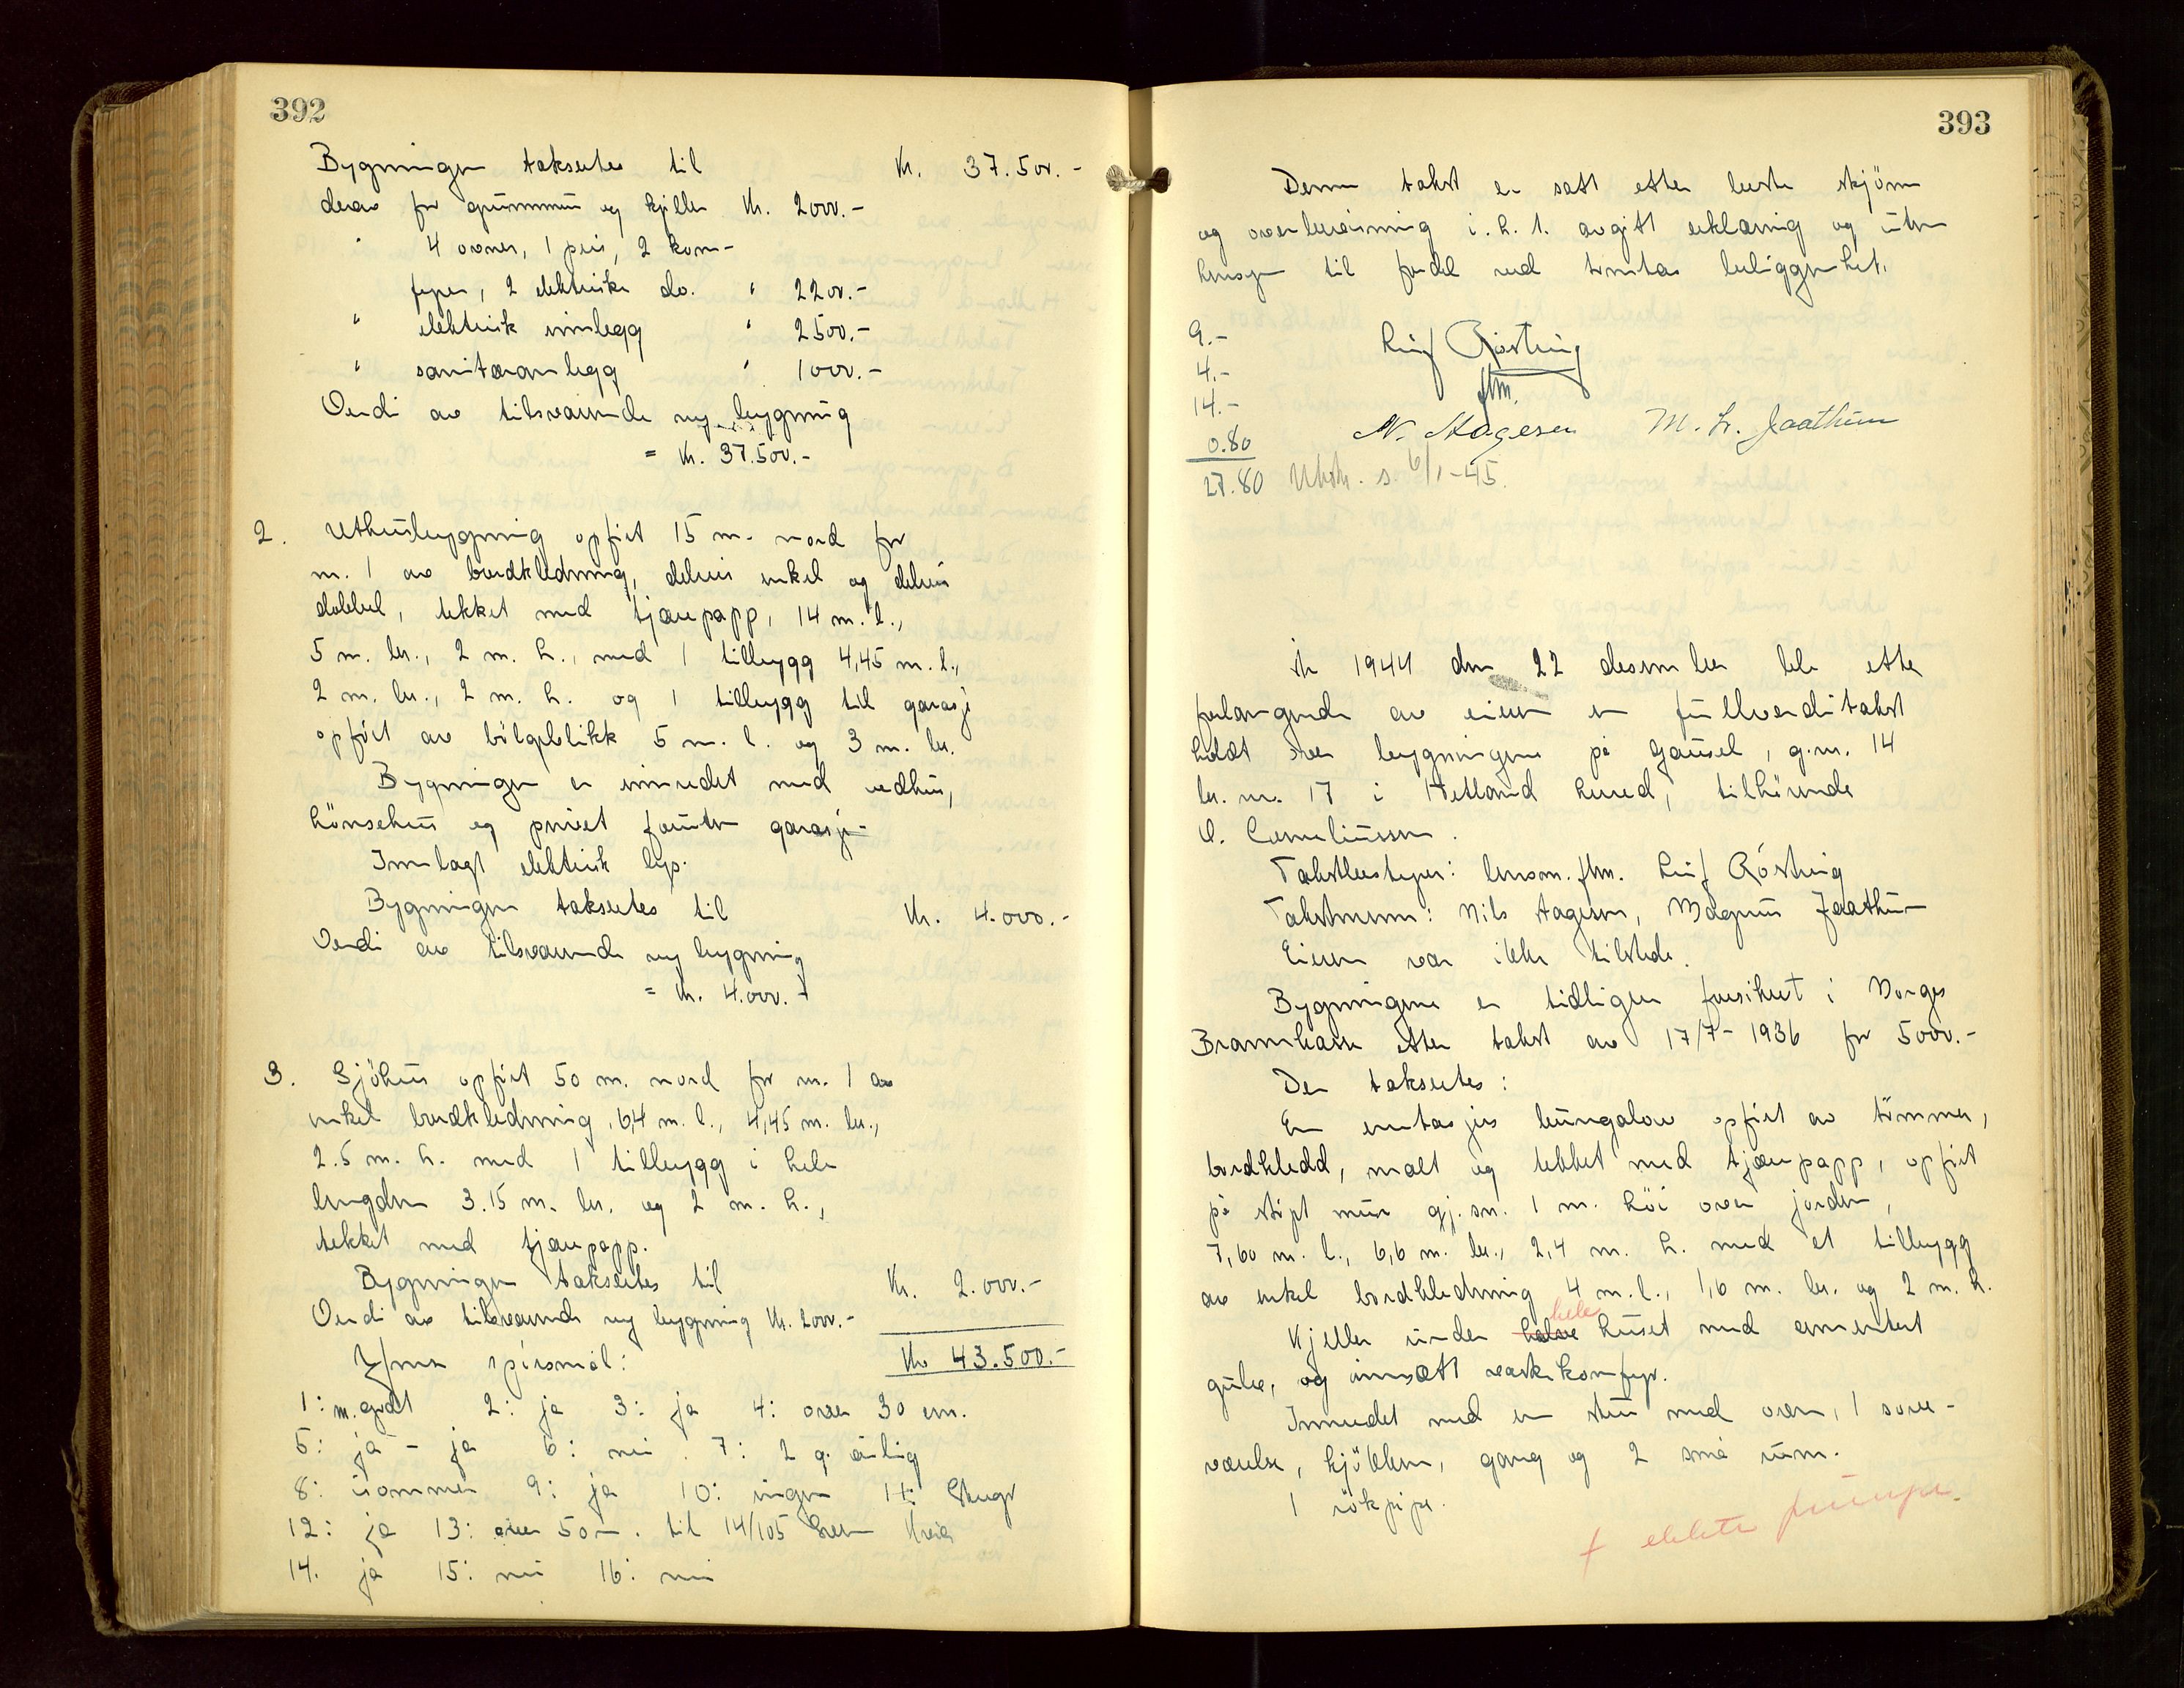 392
Bygningen takseres til Kr. 37.500.-
derav for grunnmur og kjeller Kr. 2000.-
" 4 ovner, 1 peis, 2 kom-
fyrer, 2 elektriske do. " 2200.-
" elektrisk innlegg " 2500.-
" sanitæranlegg " 1000.-
Verdi av tilsvarende ny bygning
= Kr. 37.500.-
2. Uthusbygning opført 15 m. nord for
nr. 1 av bordkledning, delvis enkel og delvis
dobbel, tekket med tjærepapp, 14 m. l.,
5 m. br., 2 m. h., med 1 tilbygg 4,45 m. l.,
2 m. br., 2 m. h. og 1 tilbygg til garasje
opført av bölgeblikk 5 m. l. og 3 m. br.
Bygningen er innredet med vedhus,
hönsehus og privet foruten garasje
Innlagt elektrisk lys.
Bygningen takseres til Kr. 4.000.-
Verdi av tilsvarende ny bygning
= Kr. 4.000.-
3. Sjöhus opført 50 m. nord for nr. 1 av
enkel bordkledning, 6,4 m. l., 4,45 m. br.,
2.5 m. h. med 1 tilbygg i hele
lengden 3.15 m. br. og 2 m. h.,
tekket med tjærepapp.
Bygningen takseres til Kr. 2.000.-
Verdi av tilsvarende ny bygning Kr. 2000.-
spörsmål: Kr. 43.500.-
1: m. godt 2: ja 3: ja 4: over 30 cm.
5: ja - ja 6: nei. 7: 2 g. årlig
8: isommer 9: ja 10: ingen 11:
12: ja 13: over 50 m. til 14/105
14. ja 15: nei 16: nei
393
Denne takst er satt efter beste skjönn
og overbevisning i. h. t. avgitt erklæring og uten
hensyn til fordel ved tomtas beliggenhet.
9.-
4.-
14.-
0.80
27.80
Leif Rösting
lm.
N. Aagesen M. L. Jaathun
Utskr. s. 6/1-45.
År 1944 den 22 desember ble etter
forlangende av eieren en fullverditakst
holdt over bygningene på Gausel, g.nr. 14
br. nr. 17 i Hetland herred, tilhörende
O. Corneliussen.
Takstbestyrer: lensm. flm. Leif Rösting
Takstmenn: Nils Aagesen, Magnus Jaathun
Eieren var ikke tilstede.
Bygningene er tidligere forsikret i Norges
Brannkasse etter takst av 17/7-1936 for 5000.-
Der takseres:
En enetasjes bungalow opført av tömmer,
bordkledd, malt og tekket med tjærepapp, opført
på stöpt mur gj.sn. 1 m. höi over jorden,
7,60 m. l., 6,6 m. br., 2,4 m. h. med et tilbygg
av enkel bordkledning 4 m. l., 1,6 m. br. og 2 m. h.
Kjeller under halve hele huset med cementert
gulv, og innsatt vaskekomfyr.
Innredet med en stue med ovn, 1 sove-
værelse, kjökken, gang og 2 små rum.
1 rökpipe.
+ elektr. pumpe.